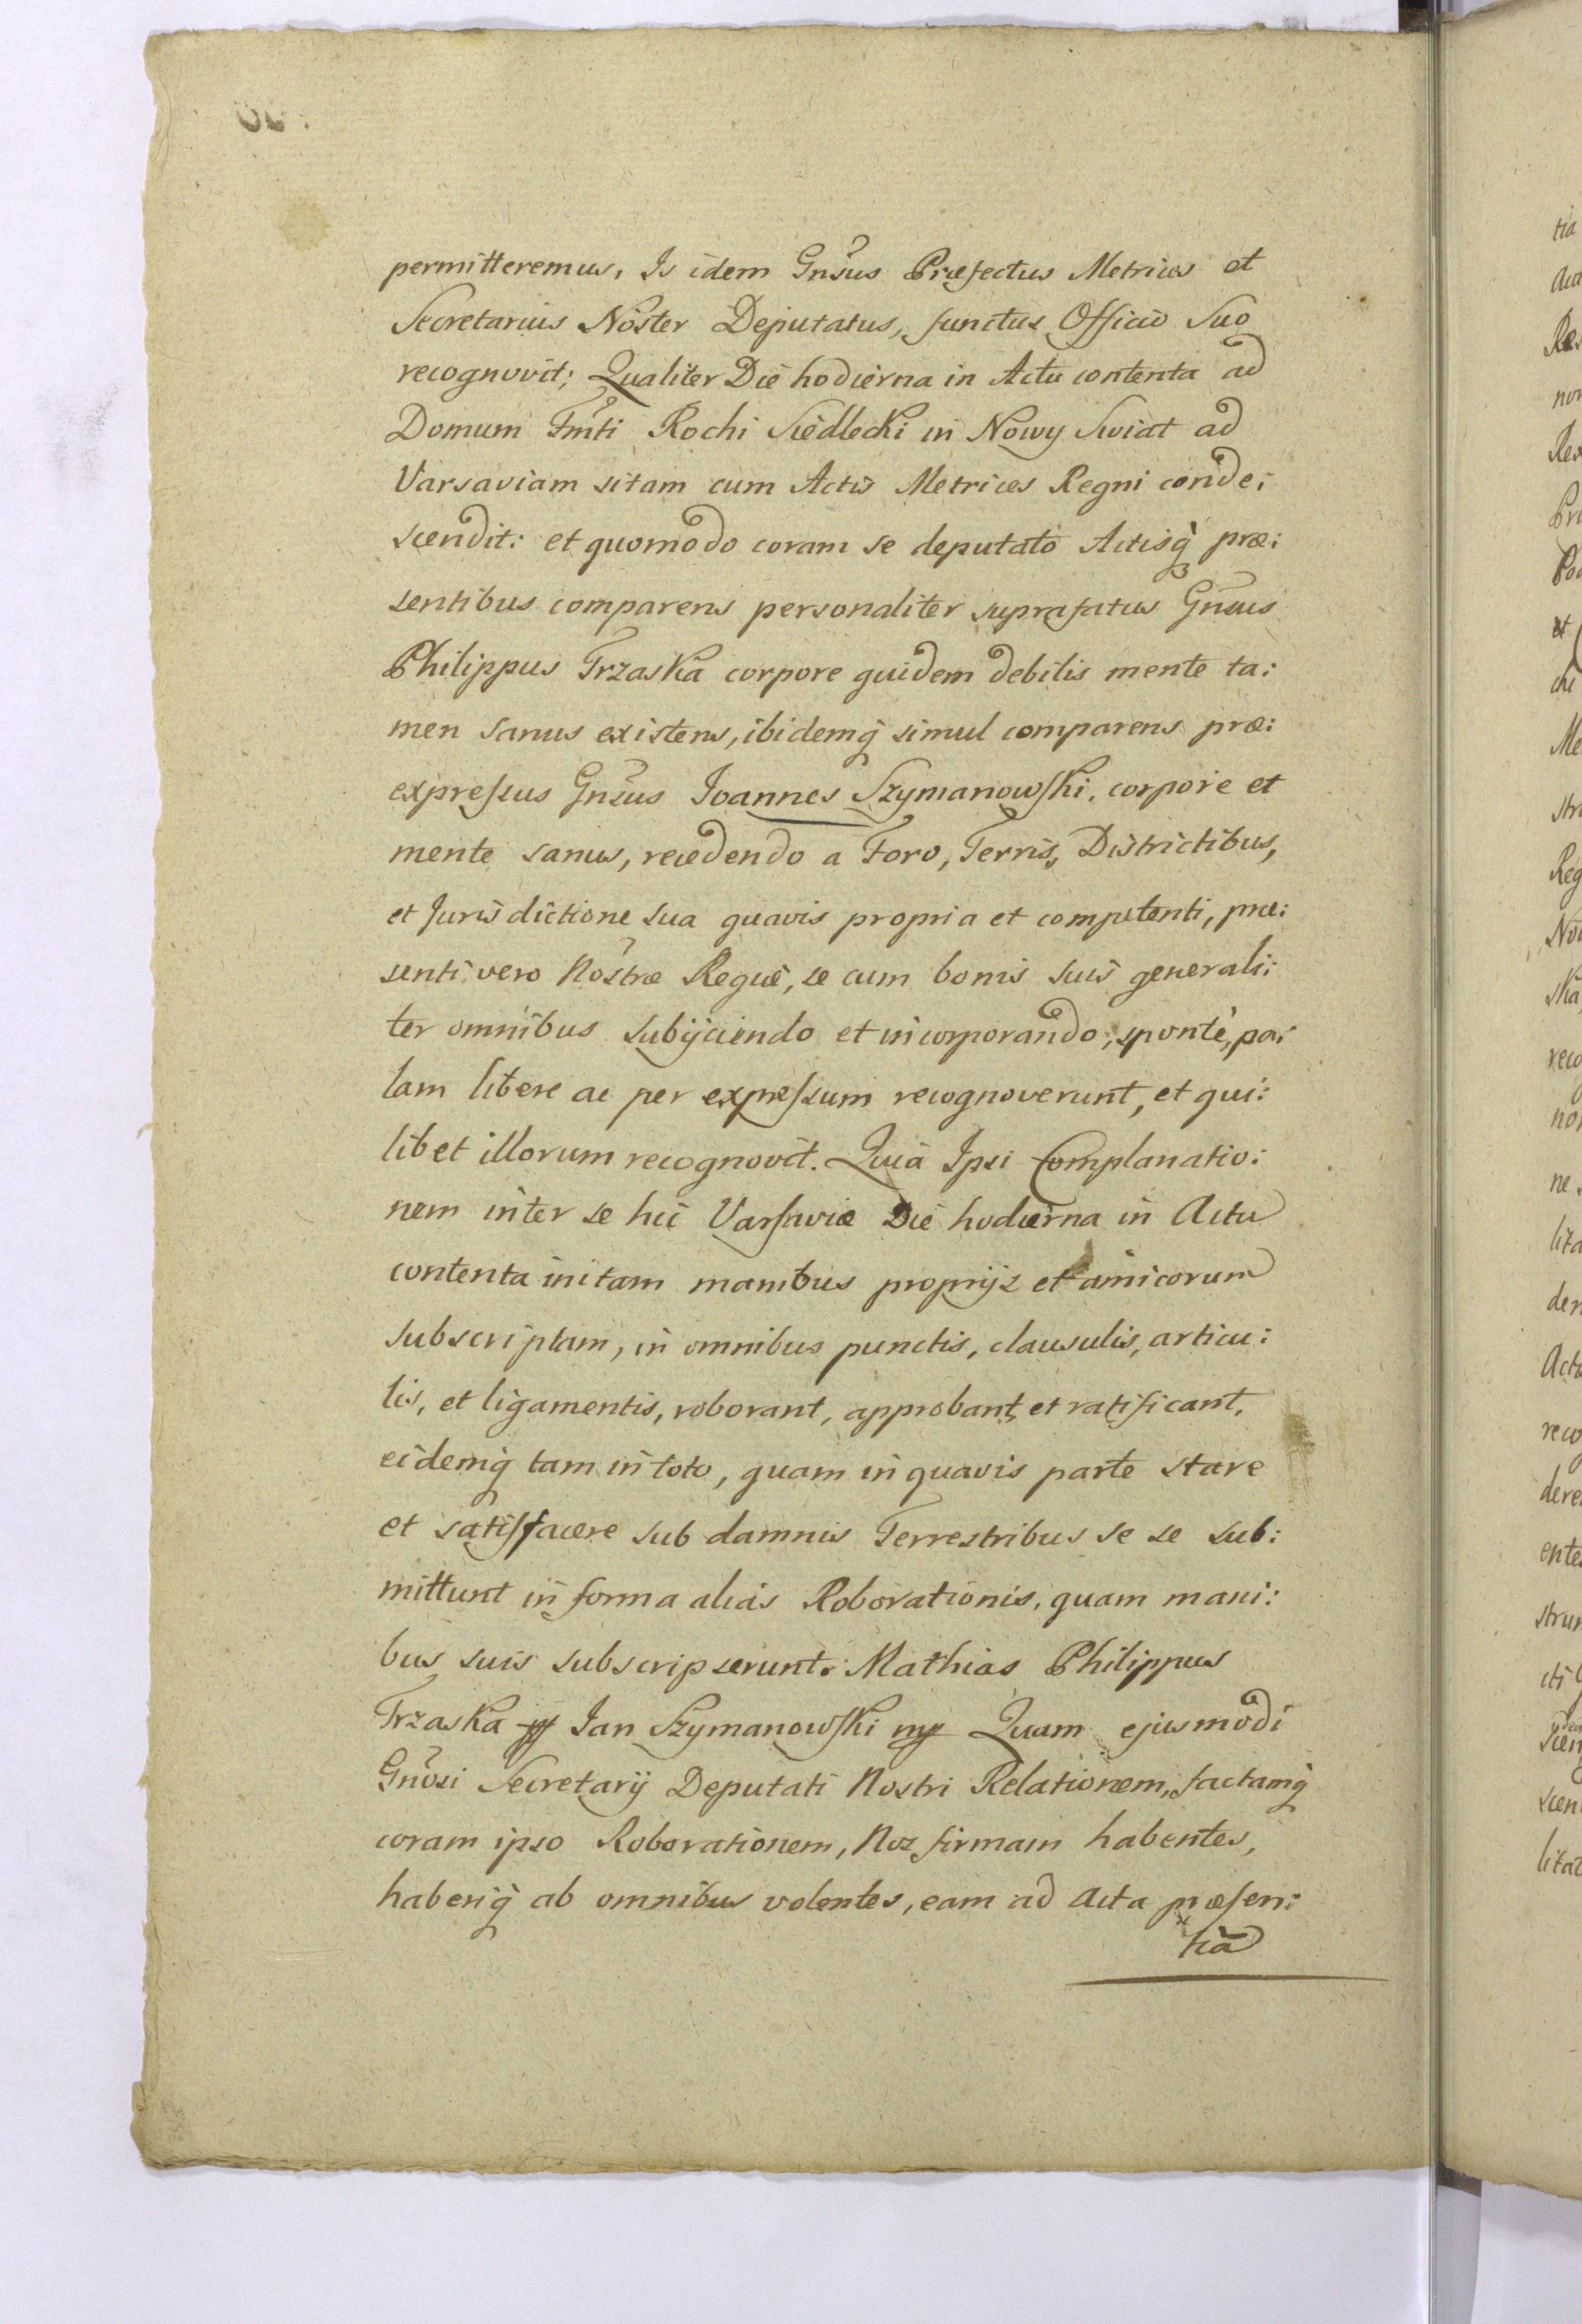 permitteremus, Is idem Gnsus Præfectus Metrices et
Secretarius Noster Deputatus, functus Officio Suo
recognovit; Qualiter Die hodierna in Actu contenta ad
Domum Fmti Rochi Siedlecki in Nowy Swiat ad
Varsaviam sitam cum Actis Metrices Regni conde:
scendit: et quomodo coram se deputato Actisq̀ præ:
sentibus comparens personaliter suprafatus Gnsus
Philippus Trzaska corpore quidem debilis mente ta:
men sanus existens, ibidemq̀ simul comparens præ:
expressus Gnsus Joannes Szymanowski, corpore et
mente sanus, recedendo a Foro, Terris, Districtibus,
et Jurisdictione sua quavis propria et competenti, præ:
senti vero Nostræ Regiæ, se cum bonis suis generali:
ter omnibus subijciendo et incorporando; spontè, pa:
lam libere ac per expressum recognoverunt, et qui:
libet illorum recognovit. Quià Ipsi Complanatio:
nem inter se hic Varsaviæ Die hodierna in Actu
contenta initam manibus proprijs et amicorum
subscriptam, in omnibus punctis, clausulis, articu:
lis, et ligamentis, roborant, approbant, et ratificant,
eidemq̀ tam in toto, quam in quavis parte stare
et satisfacere sub damnis Terrestribus se se sub:
mittunt in forma aliàs Roborationis, quam mani:
bus suis subscripserunt. Mathias Philippus
Trzaska Jan Szymanowski mp Quam ejusmodi
Gnosi Secretarij Deputati Nostri Relationem, factamq̀
coram ipso Roborationem, Nos firmam habentes,
haberiq̀ ab omnibus volentes, eam ad Acta præsen:
tia